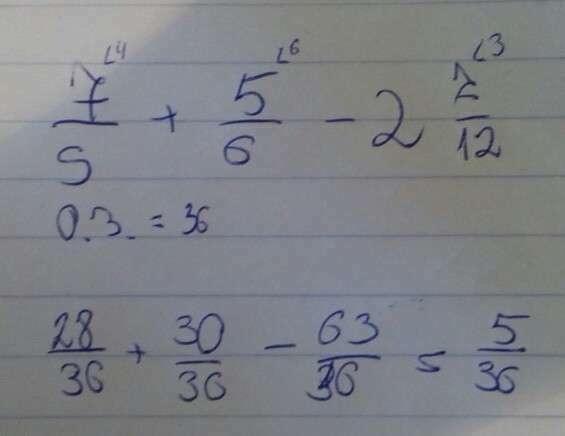 7⌊4/9 + 5⌊6/6 - 2 7⌊3/12
О.З. = 36
28/36 + 30/36 - 63/36 = 5/36